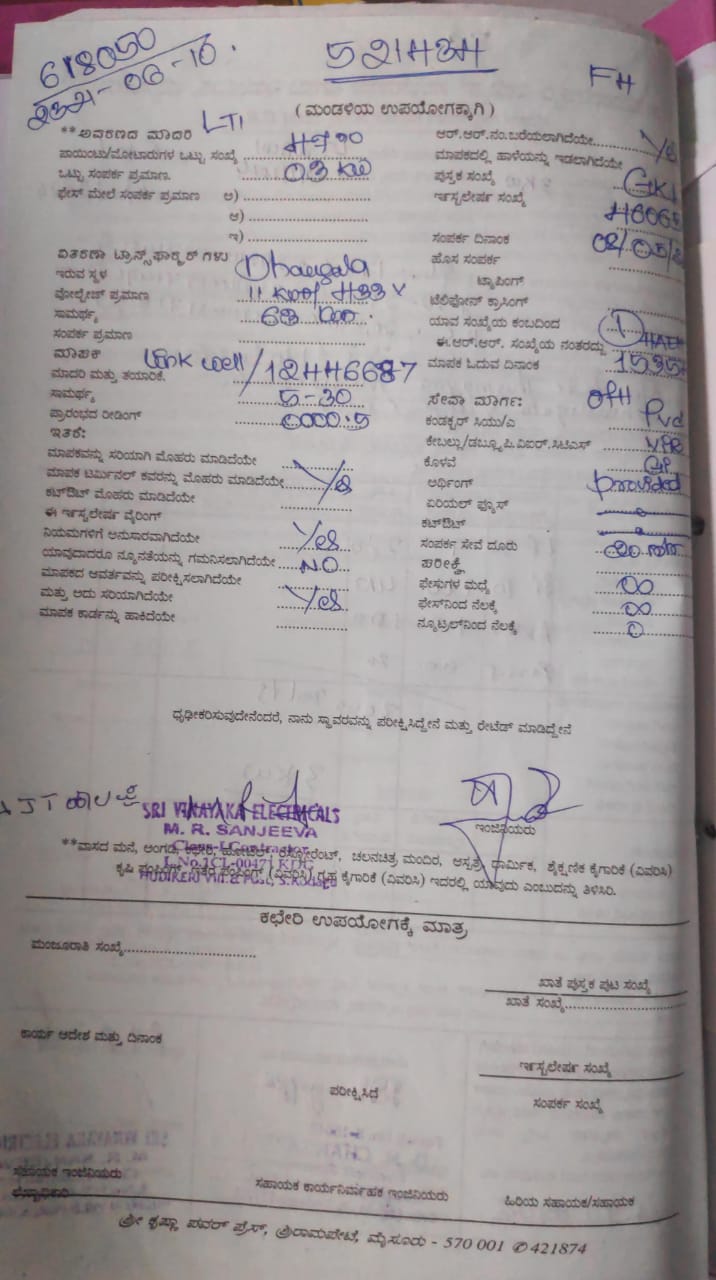 618050
521434
FH
(ಮಂಡಳಿಯ ಉಪಯೋಗಕ್ಕಾಗಿ)
**ಅವರಣದ ಮಾದರಿ LT1
ಪಾಯಿಂಟು/ಮೋಟಾರುಗಳ ಒಟ್ಟು ಸಂಖ್ಯೆ
ಒಟ್ಟು ಸಂಪರ್ಕ ಪ್ರಮಾಣ. 03 KW
ಫೇಸ್ ಮೇಲೆ ಸಂಪರ್ಕ ಪ್ರಮಾಣ ಅ)
ಆ)
ಇ)
ವಿತರಣಾ ಟ್ರಾನ್ಸ್‌ಫಾರ್ಮರ್‌ಗಳು
ಇರುವ ಸ್ಥಳ
ವೋಲ್ಟೇಜ್ ಪ್ರಮಾಣ
ಸಾಮರ್ಥ್ಯ 63
ಸಂಪರ್ಕ ಪ್ರಮಾಣ
ಮಾಪಕ
ಮಾದರಿ ಮತ್ತು ತಯಾರಿಕೆ. Link well/
ಸಾಮರ್ಥ್ಯ 5-30
ಪ್ರಾರಂಭದ ರೀಡಿಂಗ್ 0000:5
ಇತರೆ:
ಮಾಪಕವನ್ನು ಸರಿಯಾಗಿ ಮೊಹರು ಮಾಡಿದೆಯೇ
ಮಾಪಕ ಟರ್ಮಿನಲ್ ಕವರನ್ನು ಮೊಹರು ಮಾಡಿದೆಯೇ Yes
ಕಟ್‌ಔಟ್ ಮೊಹರು ಮಾಡಿದೆಯೇ
ಈ ಇನ್‌ಸ್ಟಲೇಷನ್ ವೈರಿಂಗ್
ನಿಯಮಗಳಿಗೆ ಅನುಸಾರವಾಗಿದೆಯೇ Yes
ಯಾವುದಾದರೂ ನ್ಯೂನತೆಯನ್ನು ಗಮನಿಸಲಾಗಿದೆಯೇ NO
ಮಾಪಕದ ಆವರ್ತವನ್ನು ಪರೀಕ್ಷಿಸಲಾಗಿದೆಯೇ
ಮತ್ತು ಅದು ಸರಿಯಾಗಿದೆಯೇ Yes
ಮಾಪಕ ಕಾರ್ಡನ್ನು ಹಾಕಿದೆಯೇ
ಆರ್.ಆರ್.ನಂ.ಬರೆಯಲಾಗಿದೆಯೇ Yes
ಮಾಪಕದಲ್ಲಿ ಹಾಳೆಯನ್ನು ಇಡಲಾಗಿದೆಯೇ
ಪುಸ್ತಕ ಸಂಖ್ಯೆ
ಇನ್‌ಸ್ಟಲೇಷನ್ ಸಂಖ್ಯೆ
ಸಂಪರ್ಕ ದಿನಾಂಕ
ಹೊಸ ಸಂಪರ್ಕ
ಟ್ಯಾಪಿಂಗ್
ಟೆಲಿಫೋನ್ ಕ್ರಾಸಿಂಗ್
ಯಾವ ಸಂಖ್ಯೆಯ ಕಂಬದಿಂದ
ಈ.ಆರ್.ಆರ್. ಸಂಖ್ಯೆಯ ನಂತರದ್ದು
ಮಾಪಕ ಓದುವ ದಿನಾಂಕ
ಸೇವಾ ಮಾರ್ಗ: OH
ಕಂಡಕ್ಟರ್ ಸಿಯು/ಎ
ಕೇಬಲ್ಲು/ಡಬ್ಲ್ಯೂ.ಪಿ.ಐಆರ್.ಸಿಟಿಎಸ್
ಕೊಳವೆ GP
ಅರ್ಥಿಂಗ್ provided
ಏರಿಯಲ್ ಫ್ಯೂಸ್
ಕಟ್‌ಔಟ್
ಸಂಪರ್ಕ ಸೇವೆ ದೂರು
ಪರೀಕ್ಷೆ
ಫೇಸುಗಳ ಮಧ್ಯೆ ∞
ಫೇಸ್‌ನಿಂದ ನೆಲಕ್ಕೆ ∞
ನ್ಯೂಟ್ರಲ್‌ನಿಂದ ನೆಲಕ್ಕೆ 0
ಧೃಢೀಕರಿಸುವುದೇನೆಂದರೆ, ನಾನು ಸ್ಥಾವರವನ್ನು ಪರೀಕ್ಷಿಸಿದ್ದೇನೆ ಮತ್ತು ರೇಟೆಡ್ ಮಾಡಿದ್ದೇನೆ
SRI VINAYAKA ELECTRICALS
M. R. SANJEEVA
Class-I Contractor
ಇಂಜಿನಿಯರು
**ವಾಸದ ಮನೆ, ಅಂಗಡಿ, ಕಛೇರಿ, ಹೋಟೆಲ್, ರೆಸ್ಟೋರೆಂಟ್, ಚಲನಚಿತ್ರ ಮಂದಿರ, ಆಸ್ಪತ್ರೆ, ಧಾರ್ಮಿಕ, ಶೈಕ್ಷಣಿಕ ಕೈಗಾರಿಕೆ (ವಿವರಿಸಿ)
ಕೃಷಿ ಪಂಪಿಂಗ್, ಇತರೆ ಪಂಪಿಂಗ್ (ವಿವರಿಸಿ) ಗೃಹ ಕೈಗಾರಿಕೆ (ವಿವರಿಸಿ) ಇದರಲ್ಲಿ ಯಾವುದು ಎಂಬುದನ್ನು ತಿಳಿಸಿರಿ.
ಕಛೇರಿ ಉಪಯೋಗಕ್ಕೆ ಮಾತ್ರ
ಮಂಜೂರಾತಿ ಸಂಖ್ಯೆ
ಖಾತೆ ಪುಸ್ತಕ ಪುಟ ಸಂಖ್ಯೆ
ಖಾತೆ ಸಂಖ್ಯೆ
ಕಾರ್ಯ ಆದೇಶ ಮತ್ತು ದಿನಾಂಕ
ಇನ್‌ಸ್ಟಲೇಷನ್ ಸಂಖ್ಯೆ
ಪರೀಕ್ಷಿಸಿದೆ
ಸಂಪರ್ಕ ಸಂಖ್ಯೆ
ಸಹಾಯಕ ಇಂಜಿನಿಯರು
ಸಹಾಯಕ ಕಾರ್ಯನಿರ್ವಾಹಕ ಇಂಜಿನಿಯರು
ಹಿರಿಯ ಸಹಾಯಕ/ಸಹಾಯಕ
ಶ್ರೀ ಕೃಷ್ಣಾ ಪವರ್ ಪ್ರೆಸ್, ಶ್ರೀರಾಮಪೇಟೆ, ಮೈಸೂರು - 570 001 ✆ 421874